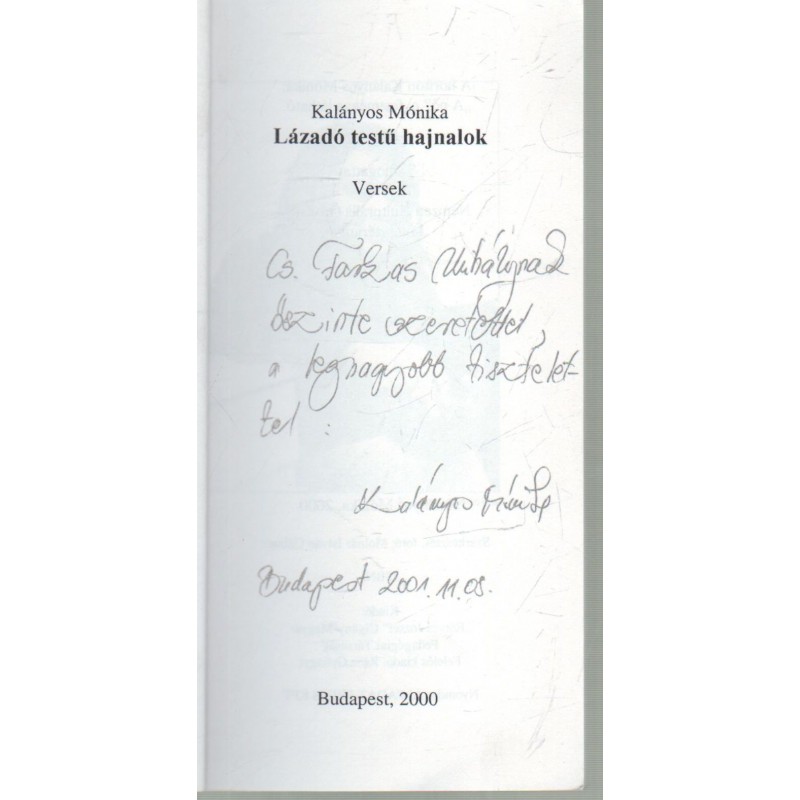 Kalányos Mónika
Lázadó testű hajnalok
Versek
Cs. Farkas Mihálynak
őszinte szeretettel,
a legnagyobb tisztelet-
tel :
Kalányos Mónika
Budapest 2001. 11. 08.
Budapest, 2000